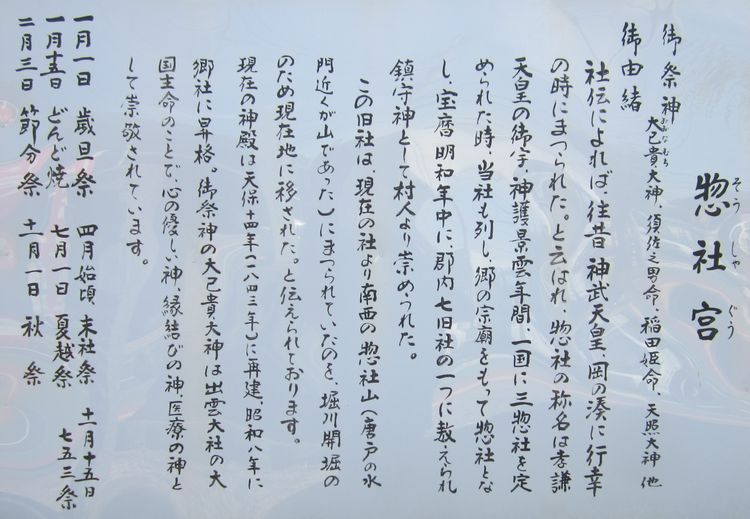 惣社宮
そうしゃぐう
御祭神
大己貴大神、須佐之男命、稲田姫命、天照大神 他
おなむち
御由緒
社伝によれば、往昔 神武天皇、岡の湊に行幸
の時にまつられた。と云はれ、惣社の称名は孝謙
天皇の御宇、神護景雲年間、一国に三惣社を定
められた時、当社も列し、郷の宗廟をもって惣社とな
し、宝暦 明和年中に、郡内七旧社の一つに数えられ
鎮守神として村人より崇められた。
この旧社は、現在の社より南西の惣社山(唐戸の水
門近くが山であった)にまつられていたのを、堀川開堀の
のため現在地に移された。と伝えられております。
現在の神殿は天保十四年(一八四三年)に再建、昭和八年に
郷社に昇格。御祭神の大己貴大神は出雲大社の大
国主命のことで、心の優しい神、縁結びの神、医療の神と
して崇敬されています。
一月一日 歳旦祭 四月始頃 末社祭 十一月十五日
一月十五日 どんど焼 七月一日 夏越祭 七五三祭
二月三日 節分祭 十一月一日 秋祭